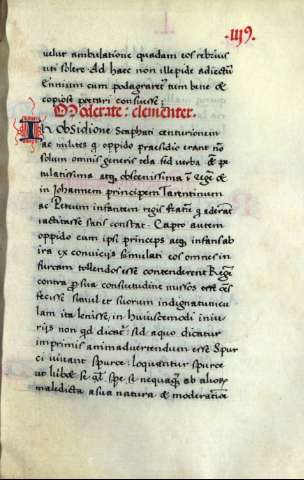 119.
velut ambulatione quadam eos crebrius
uti solere. Ad haec non illepide adiecit
Ennium cum podagraret tum bene &
copiose poetari consuesse;
Moderate: clementer.
In obsidione Scaphati centurionem
ac milites q oppido praesidio erant nō
solum omnis generis tela sed verba &
putulatissima atq, obscenissima ī regē &
in Iohannem principem Tarentinum
ac Petrum infantem regis fratrē q aderāt
iactitasse satis constat. Capto autem
oppido cum ipsi princeps atq, infans ab
ira ex convicijs stimulati eos omnes in
furcam tollendos esse contenderent Regē
contra pro sua consuetudine missos esse
fecisse statuit et suorum indignatiuncu
lam ita lenisse, in huiuscemodi iniu
rijs non qd diceret: sed a quo dicatur
imprimis animadvertendum esse Spur
ci vivant spurce: loquantur spurce
ut lubet
maledicta a sua natura & moderatione